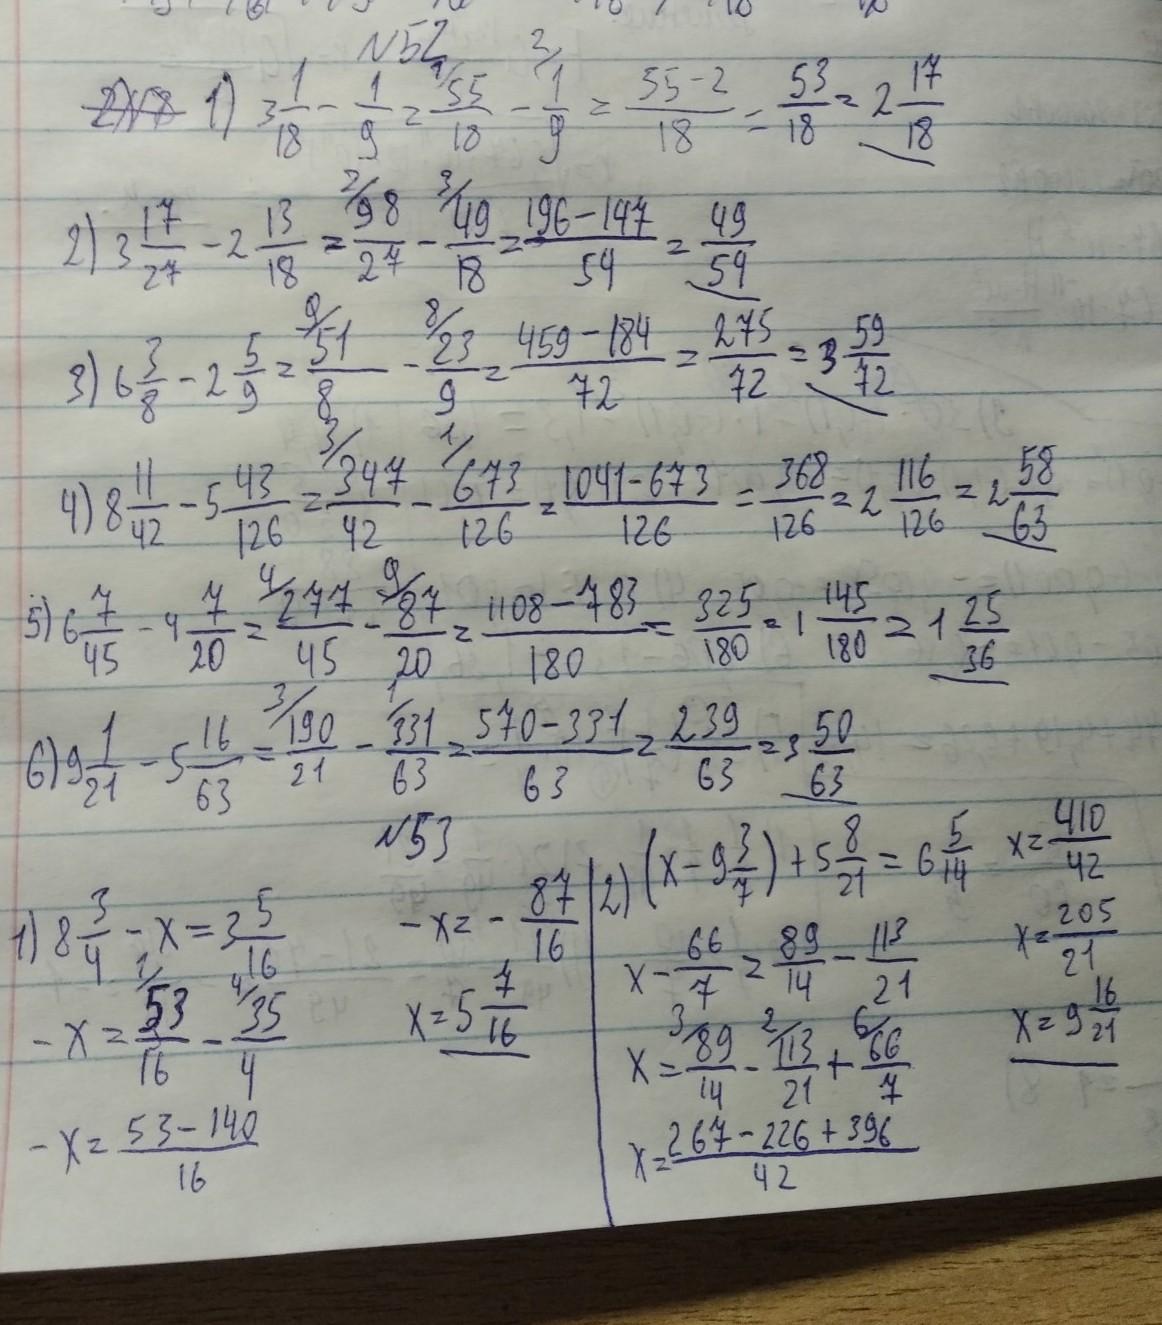 N52
1) 3 1/18 - 1/9 = 1/ 55/18 - 2/ 1/9 = 55-2/18 = 53/18 = 2 17/18
2) 3 17/27 - 2 13/18 = 2/ 98/27 - 3/ 49/18 = 196-147/54 = 49/54
3) 6 3/8 - 2 5/9 = 9/ 51/8 - 8/ 23/9 = 459-184/72 = 275/72 = 3 59/72
4) 8 11/42 - 5 43/126 = 3/ 347/42 - 1/ 673/126 = 1041-673/126 = 368/126 = 2 116/126 = 2 58/63
5) 6 7/45 - 4 7/20 = 4/ 277/45 - 9/ 87/20 = 1108-783/180 = 325/180 = 1 145/180 = 1 25/36
6) 9 1/21 - 5 16/63 = 3/ 190/21 - 1/ 331/63 = 570-331/63 = 239/63 = 3 50/63
N53
1) 8 3/4 - x = 3 5/16
- x = 1/ 53/16 - 4/ 35/4
- x = 53-140/16
- x = - 87/16
x = 5 7/16
2) (x - 9 3/7) + 5 8/21 = 6 5/14
x - 66/7 = 89/14 - 113/21
x = 3/ 89/14 - 2/ 113/21 + 6/ 66/7
x = 267-226+396/42
x = 410/42
x = 205/21
x = 9 16/21